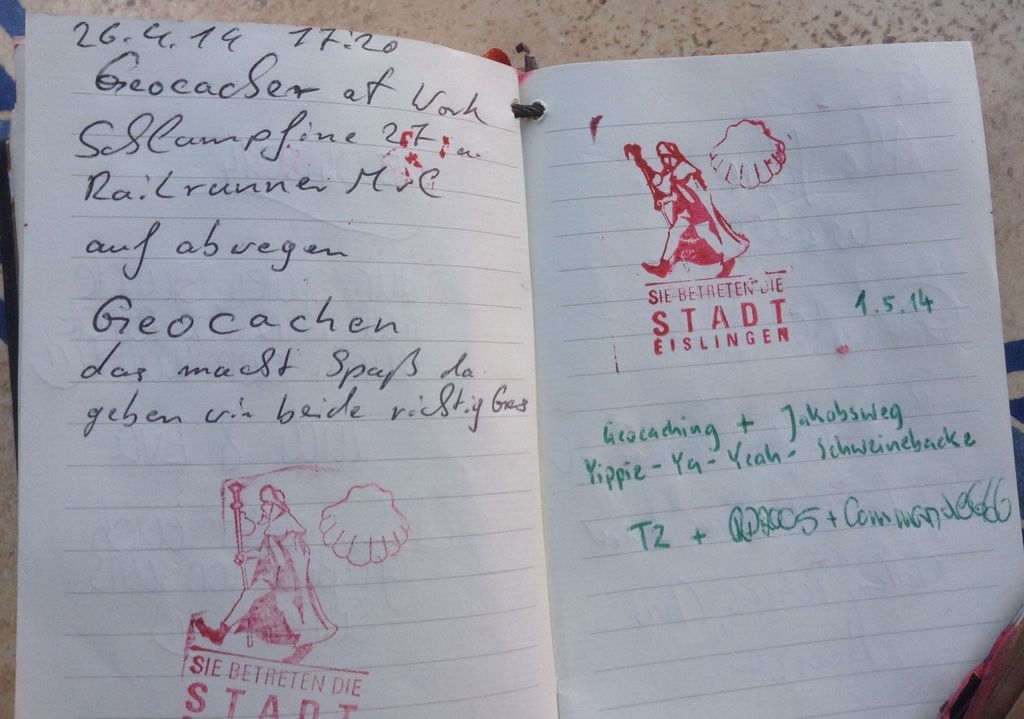 26.4.14 17:20
Geocacher at Work
Schlampfine 27
Railrunner MvC
auf abwegen
Geocachen
das macht Spaß da
geben wir beide richtig Gas
SIE BETRETEN DIE
STADT
SIE BETRETEN DIE
STADT
EISLINGEN
1.5.14
Geocaching + Jakobsweg
Yippie-Ya-Yeah-Schweinebacke
T2 + + Commander666